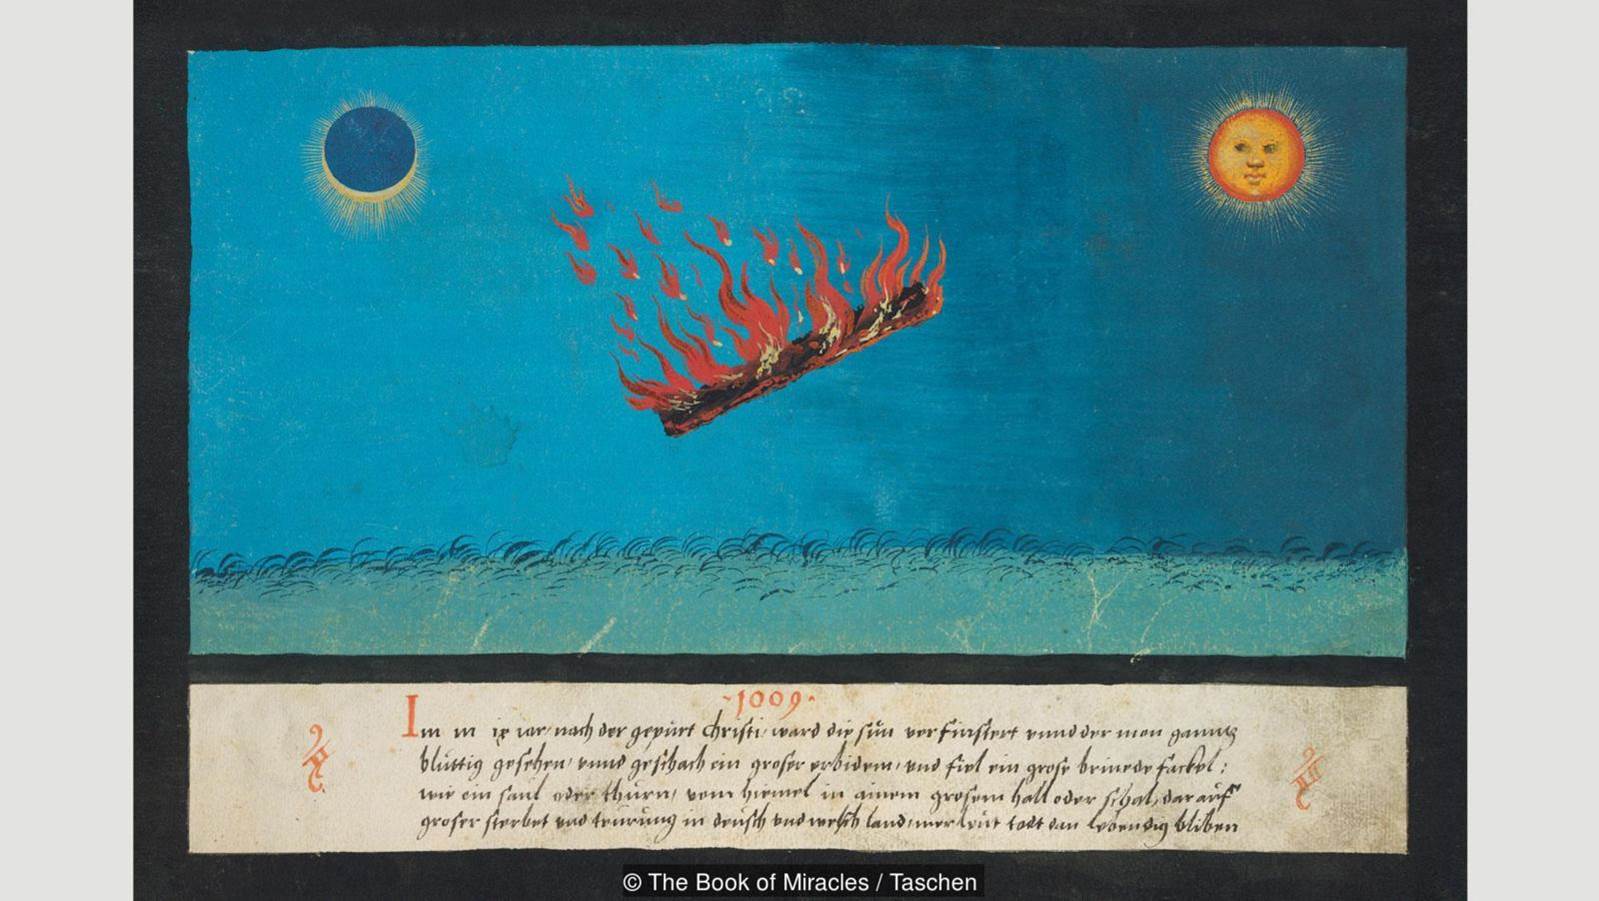 ·1009·
Im m ix iar nach der gepürt Christi, ward die sün verfinstert vnnd der mon ganntz
blüttig gesehen, vnnd geschach ein groser erbidem, vnd fiel ein grose brinede fackel:
wie ein saul oder thurn, vom himel in ainem grosem hall oder schal, dar auff
groser sterbet vnd teurung in deüsch vnd welsch land, mer leüt todt dan lebendig bliben
© The Book of Miracles / Taschen